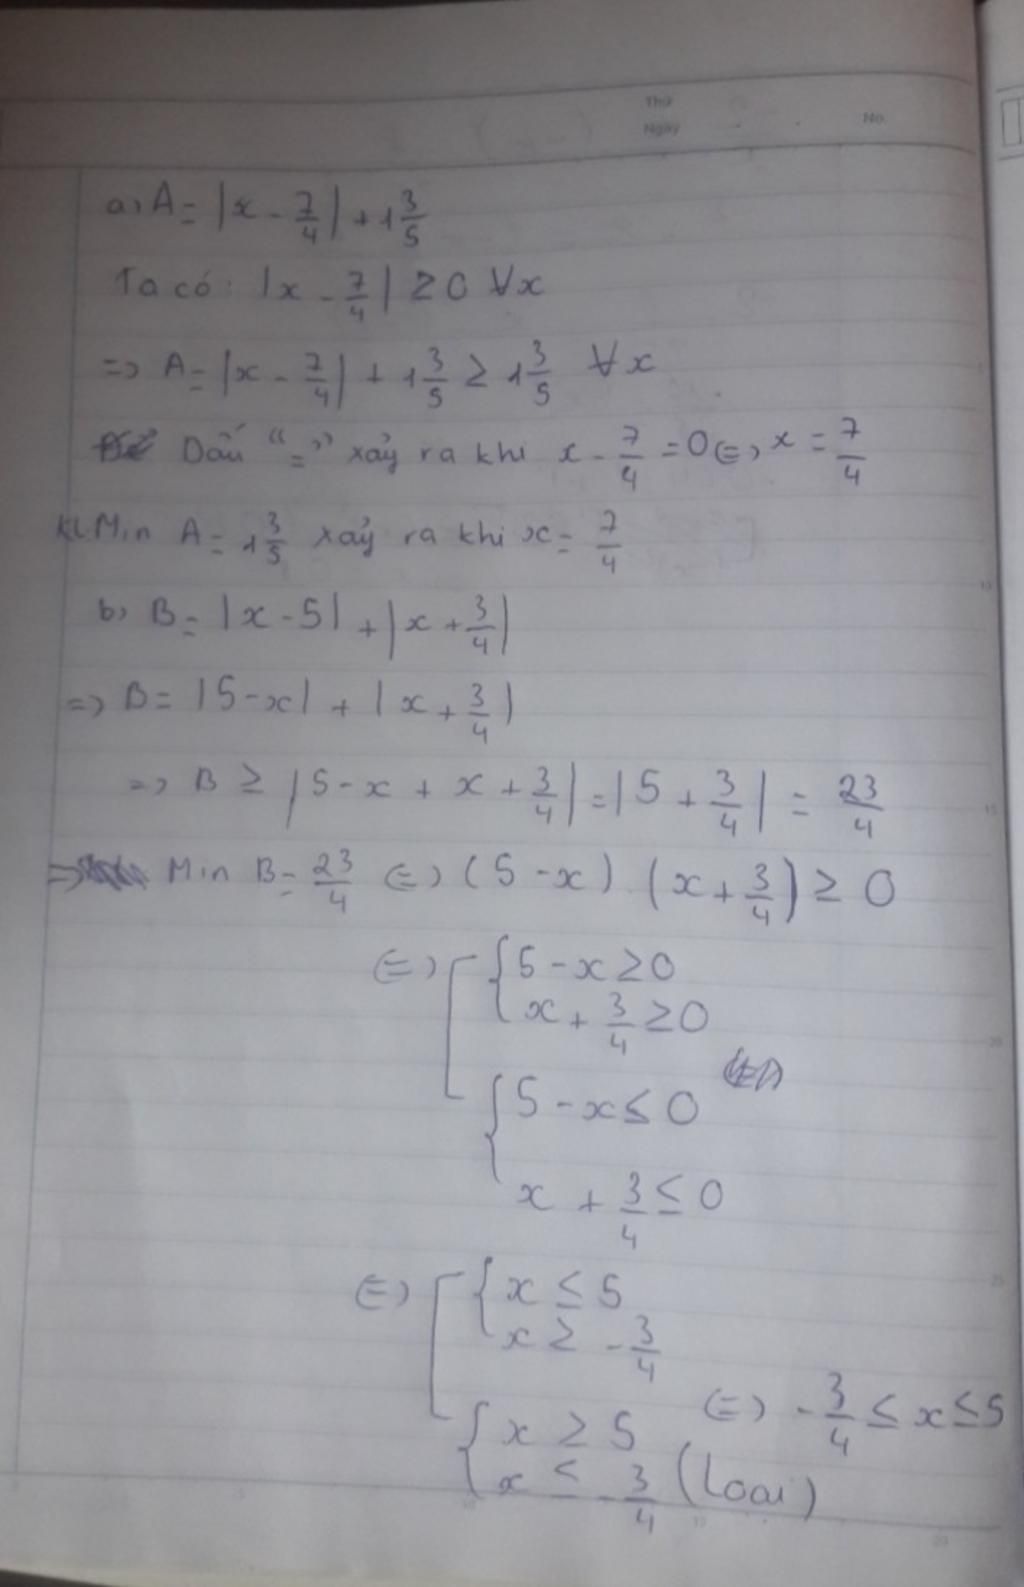 Thứ
Ngày
No.
a, A = |x - 7/4| + 1 3/5
Ta có: |x - 7/4| ≥ 0 ∀x
=> A = |x - 7/4| + 1 3/5 ≥ 1 3/5 ∀x
Dấu "=" xảy ra khi x - 7/4 = 0 (=) x = 7/4
KL Min A = 1 3/5 xảy ra khi x = 7/4
b, B = |x - 5| + |x + 3/4|
=> B = |5 - x| + |x + 3/4|
=> B ≥ |5 - x + x + 3/4| = |5 + 3/4| = 23/4
=> Min B = 23/4 (=) (5 - x) . (x + 3/4) ≥ 0
(=) [ { 5 - x ≥ 0
x + 3/4 ≥ 0
{ 5 - x ≤ 0
x + 3/4 ≤ 0
(=) [ { x ≤ 5
x ≥ - 3/4
(=) - 3/4 ≤ x ≤ 5
{ x ≥ 5
x ≤ - 3/4 (Loại)